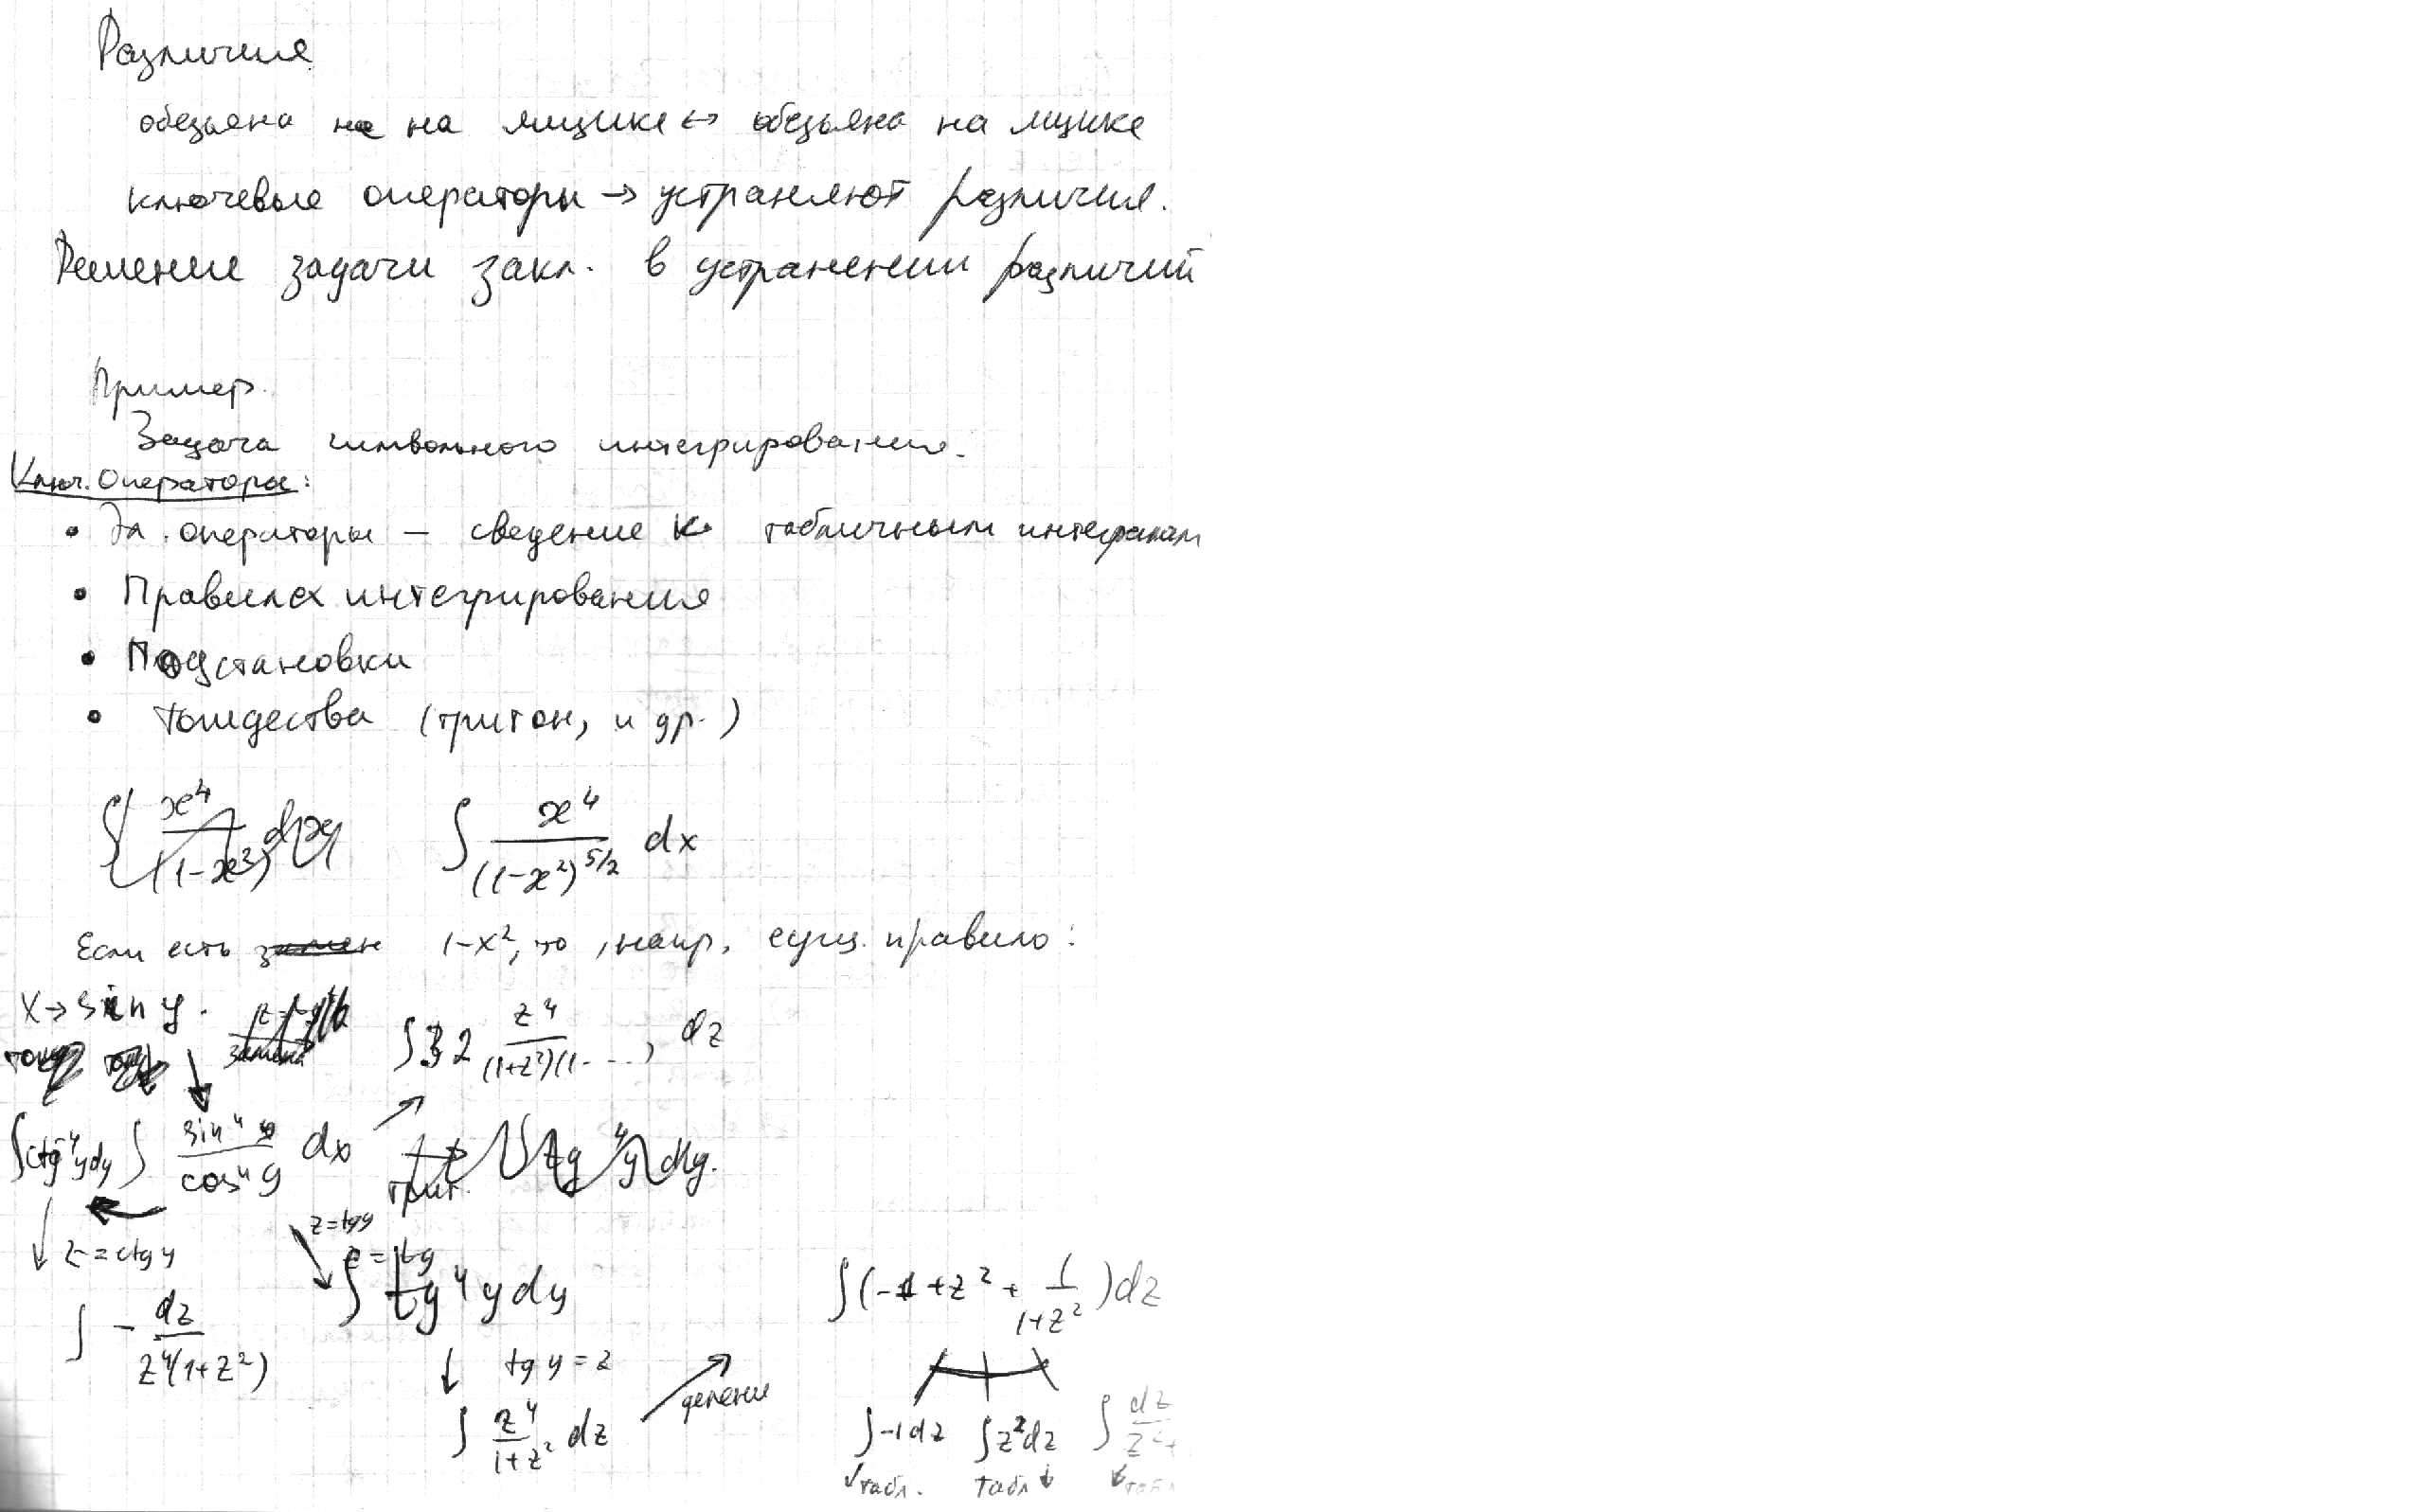 Различия
обезьяна не на ящике ↔ обезьяна на ящике
ключевые операторы → устраняют различия.
Решение задачи закл. в устранении различий
Пример.
Задача символьного интегрирования.
Ключ. Операторы:
• Эл. операторы – сведение к табличным интегралам
• Правила интегрирования
• Подстановки
• тождества (тригон, и др.)
∫ x⁴/(1-x²) dx ∫ x⁴/(1-x²)^5/2 dx
Если есть 1-x², то, напр, сущ. правило:
x → sin y.
∫ 32 z⁴/(1+z²)(1-..., dz
∫ctg⁻⁴y dy ∫ sin⁴y/cos⁴y dx → триг. ∫ tg⁴y dy.
z = ctg y z = tg y
z = tg
∫ - dz/z⁴(1+z²) ∫ tg⁴y dy ∫(-1 + z² + 1/1+z²)dz
↓ tg y = z
∫ z⁴/1+z² dz деление ∫-1dz ∫z²dz ∫ dz/z²+
↓табл. табл ↓ ↓табл